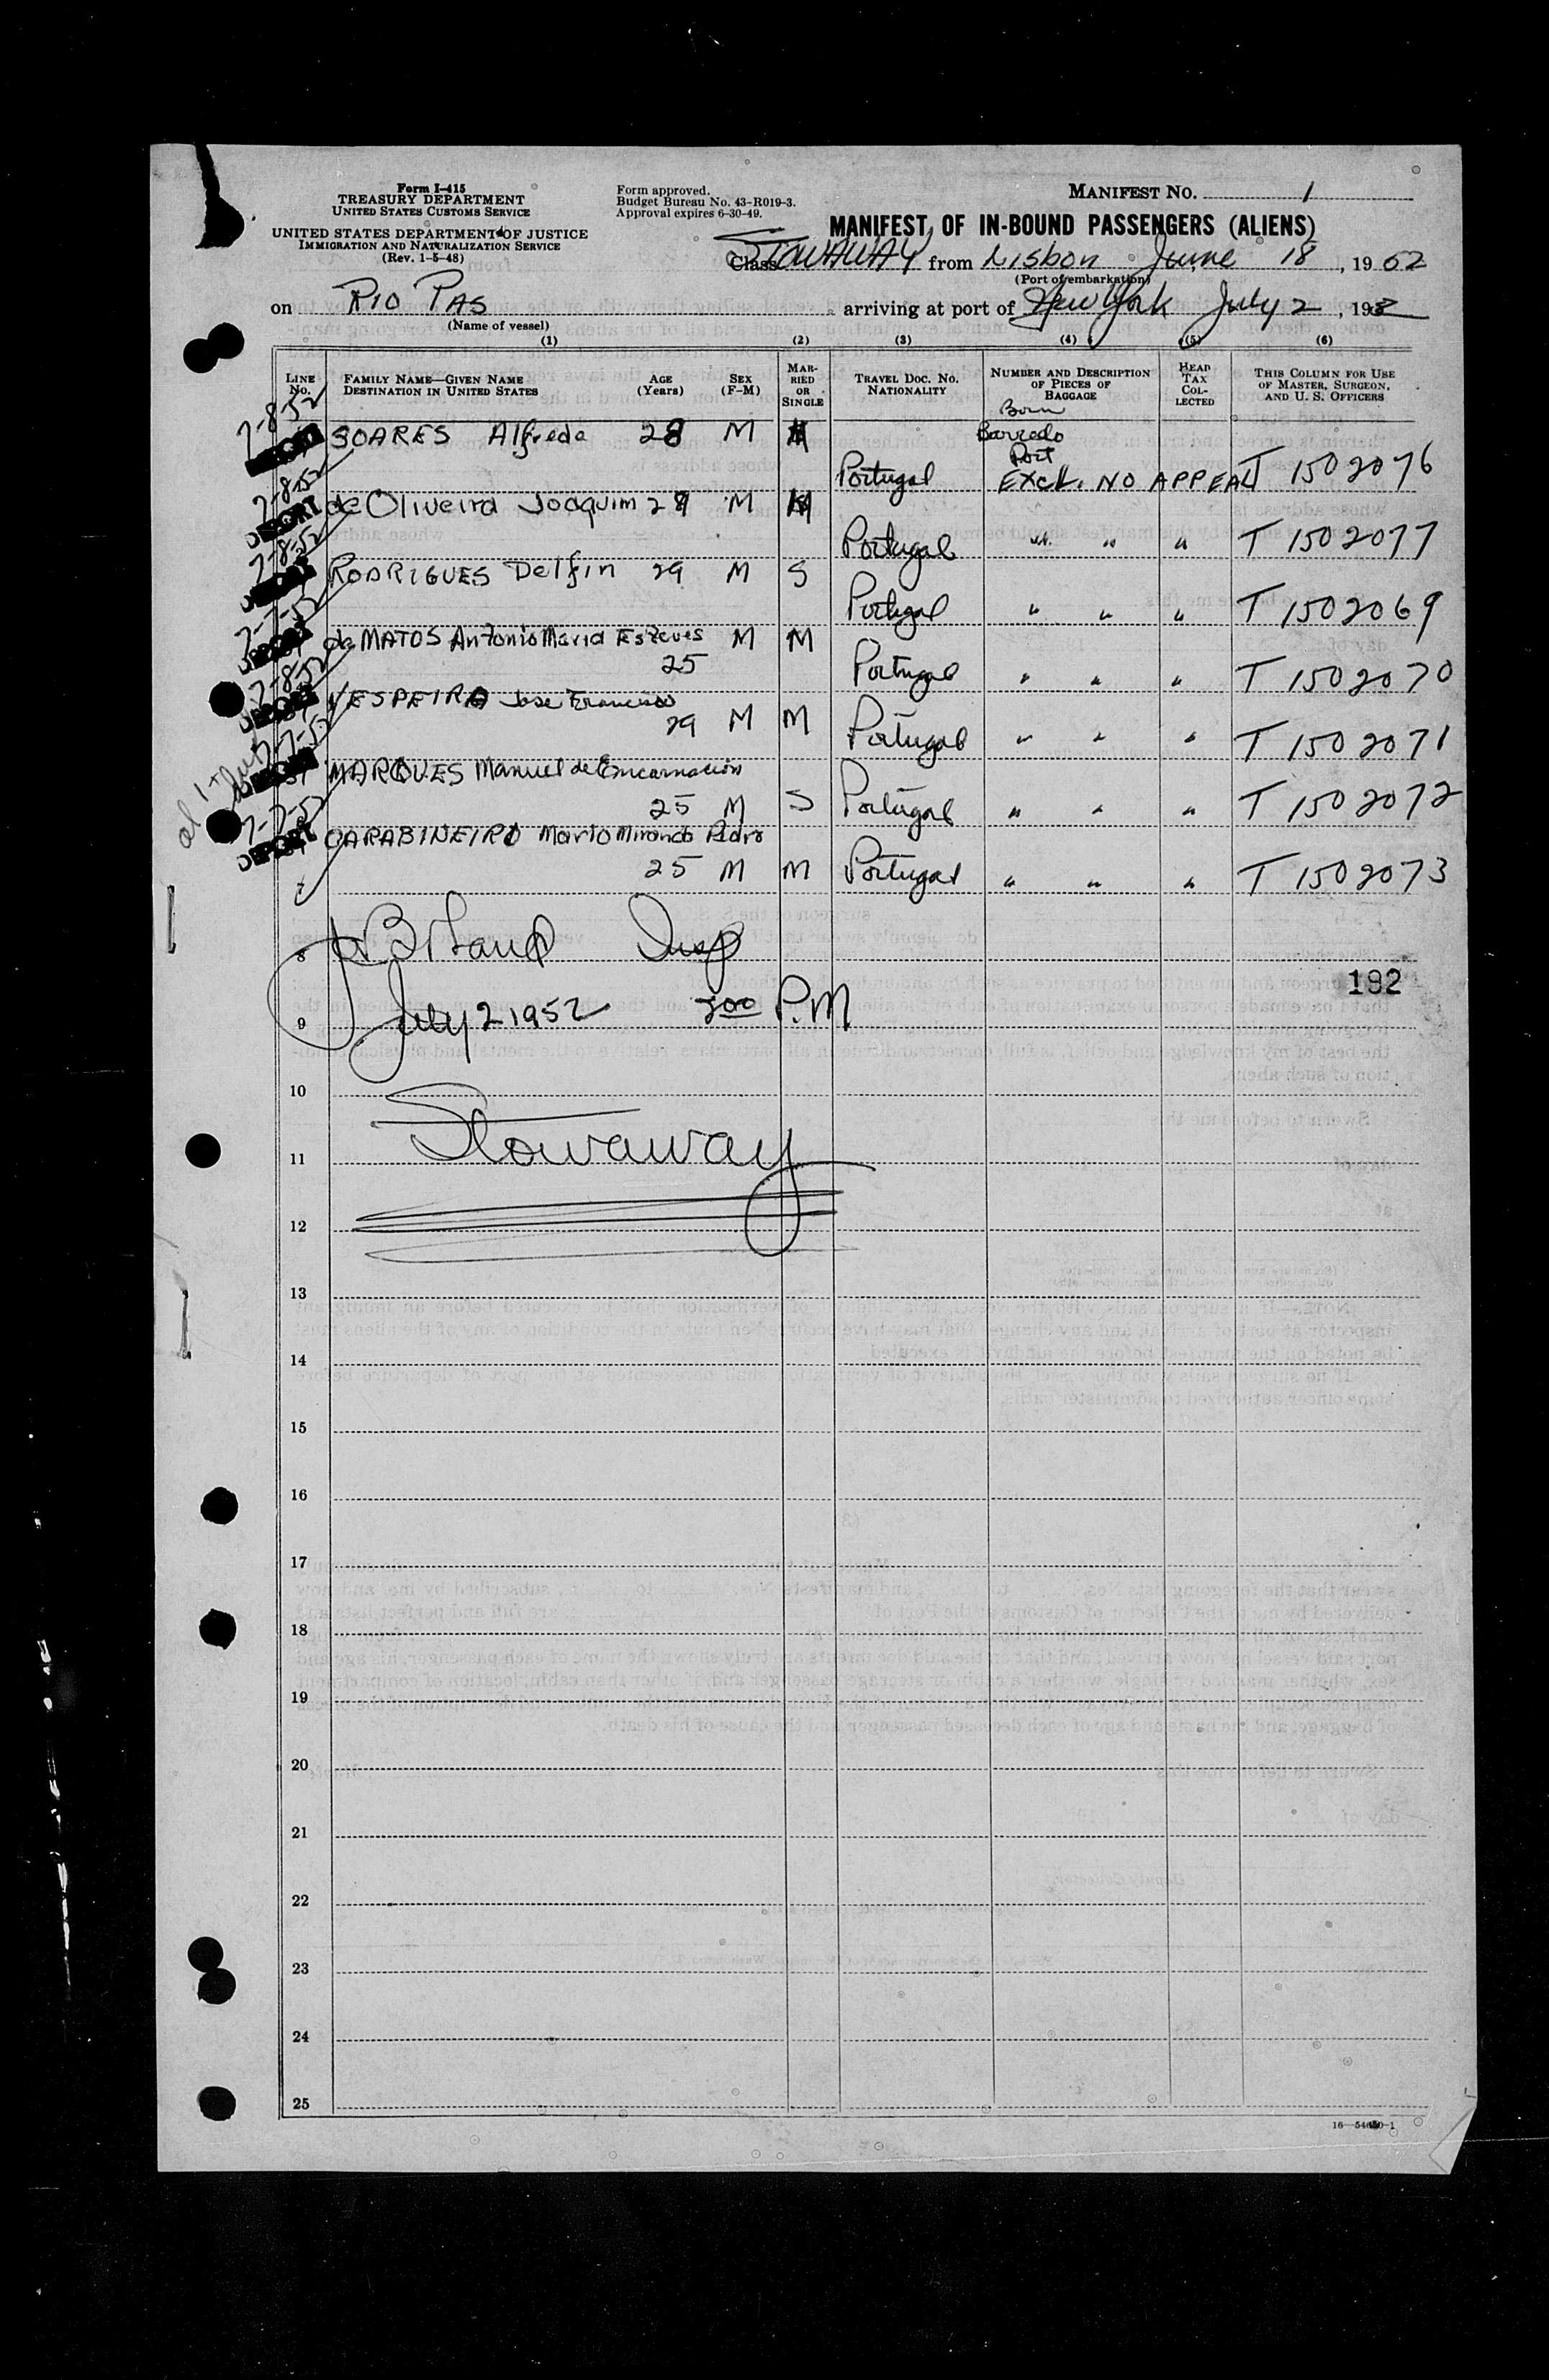 Form I-415
TREASURY DEPARTMENT
UNITED STATES CUSTOMS SERVICE
UNITED STATES DEPARTMENT OF JUSTICE
IMMIGRATION AND NATURALIZATION SERVICE
(Rev. 1-5-48)
Form approved.
Budget Bureau No. 43-R019-3.
Approval expires 6-30-49.
MANIFEST NO. 1
MANIFEST OF IN-BOUND PASSENGERS (ALIENS)
Class STOWAWAY from Lisbon June 18, 1952
(Port of embarkation)
on RIO PAS arriving at port of New York July 2, 1952
(Name of vessel)
(1) (2) (3) (4) (5) (6)
LINE No. FAMILY NAME—GIVEN NAME DESTINATION IN UNITED STATES AGE (Years) SEX (F-M) MARRIED OR SINGLE TRAVEL DOC. NO. NATIONALITY NUMBER AND DESCRIPTION OF PIECES OF BAGGAGE HEAD TAX COLLECTED THIS COLUMN FOR USE OF MASTER, SURGEON, AND U. S. OFFICERS
Born
7-8-52 SOARES Alfredo 28 M Barredo
Port
Portugal Excl. NO APPEAL T 1502076
7-8-52 DEPORT de Oliveira Joaquim 29 M M
Portugal " " " T 1502077
7-8-52 RODRIGUES Delfin 29 M S
Portugal " " " T 1502069
7-7-52 DEPORT de MATOS Antonio Maria Esteves M M
25 Portugal " " " T 1502070
7-8-52 DEPORT VESPEIRA Jose Francisco
29 M M Portugal " " " T 1502071
7-7-52 MARQUES Manuel de Encarnacion
25 M S Portugal " " " T 1502072
7-7-52 DEPORT CARABINEIRO Mario Miranda Pedro
7 25 M M Portugal " " " T 1502073
8 Insp
192
9 July 2 1952 200 P.M
10
11 Stowaway
12
13
14
15
16
17
18
19
20
21
22
23
24
25